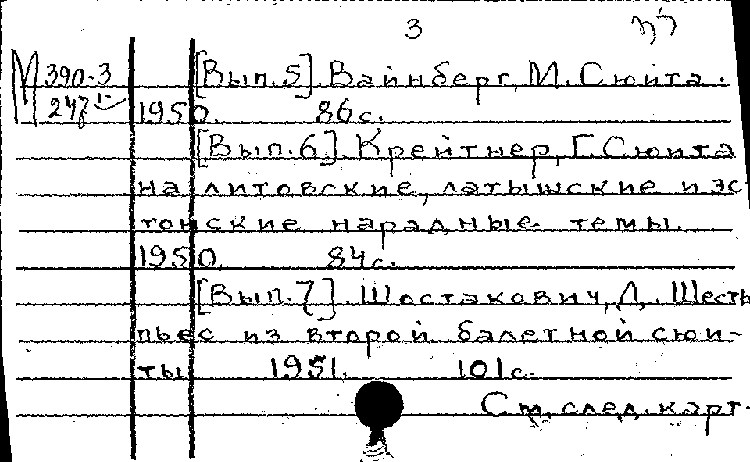 3
М 390-3 [Вып.5]. Вайнберг, М. Сюита.
247 1950. 86 с.
[Вып.6]. Крейтнер, Г. Сюита
на литовские, латышские и эс
тонские народные темы.
1950. 84 с.
[Вып.7]. Шостакович, Д. Шесть
пьес из второй балетной сюи-
ты 1951. 101 с.
См. след. карт.